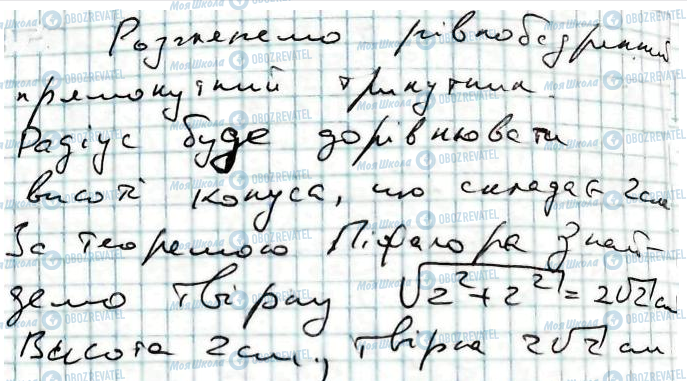 Розглянемо рівнобедренний
прямокутний трикутник.
Радіус буде дорівнювати
висоті конуса, що складає 2см
За теоремою Піфагора знай-
демо твірну √2²+2² = 2√2 см
Висота 2см, твірна 2√2 см